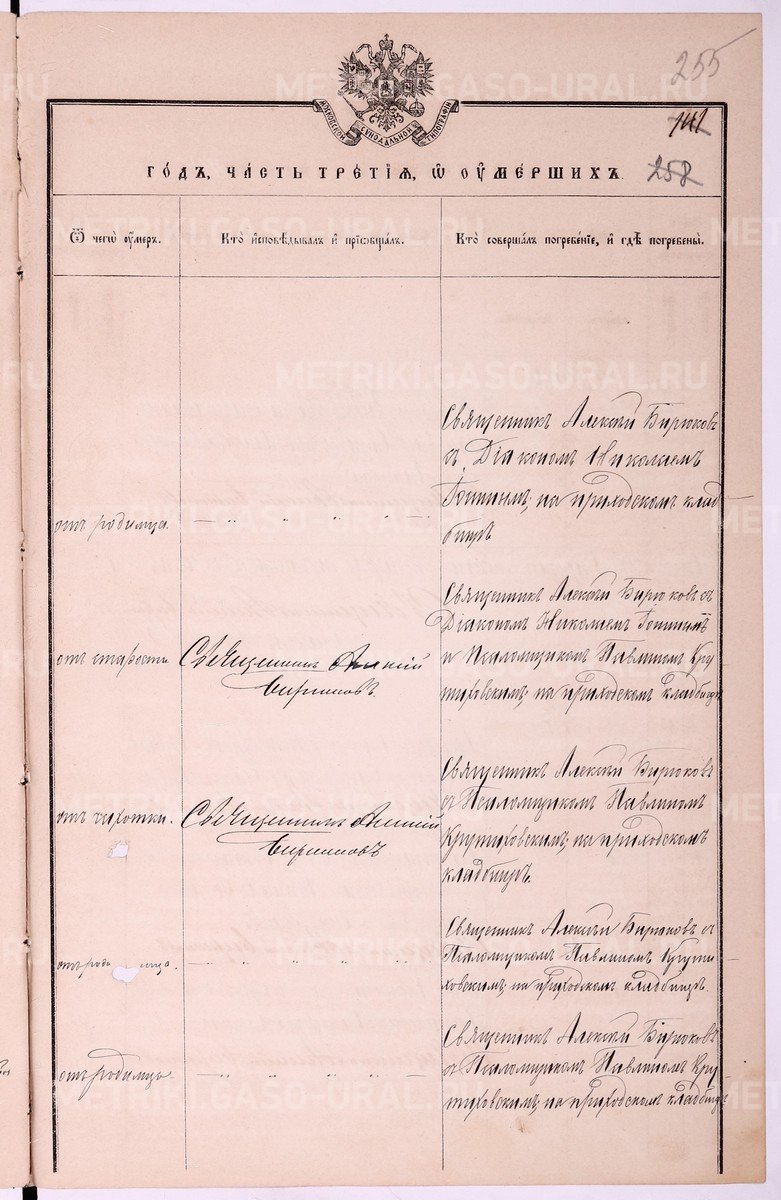 255
МОСКОВСКОЙ СѴНОДАЛЬНОЙ ТИПОГРАФІИ
142
258
ГОДЪ, ЧАСТЬ ТРЕТІЯ, Ѿ ОУМЕРШИХЪ.
Ѿ чегѡ оумеръ.
Кто исповѣдывалъ и пріобщалъ.
Кто совершалъ погребеніе, и гдѣ погребены.
отъ родимца.
Священникъ Алексѣй Бирюковъ
съ Діакономъ Николаемъ
на приходскомъ клад-
бищѣ
отъ старости
Священникъ Алексій
Бирюковъ.
Священникъ Алексѣй Бирюковъ съ
Діакономъ Николаемъ
и Псаломщикомъ Павлиномъ Кру-
тиховскимъ, на приходском кладбищѣ
отъ чахотки.
Священникъ Алексій
Бирюковъ
Священникъ Алексѣй Бирюковъ
съ Псаломщикомъ Павлиномъ
Крутиховскимъ, на приходскомъ
кладбищѣ.
отъ роди мца.
Священникъ Алексѣй Бирюковъ съ
Псаломщикомъ Павлиномъ Крути-
ховскимъ, на приходскомъ кладбищѣ.
отъ родимца
Священникъ Алексѣй Бирюковъ
съ Псаломщикомъ Павлиномъ Кру-
тиховскимъ, на приходскомъ кладбищѣ
METRIKI.GASO-URAL.RU